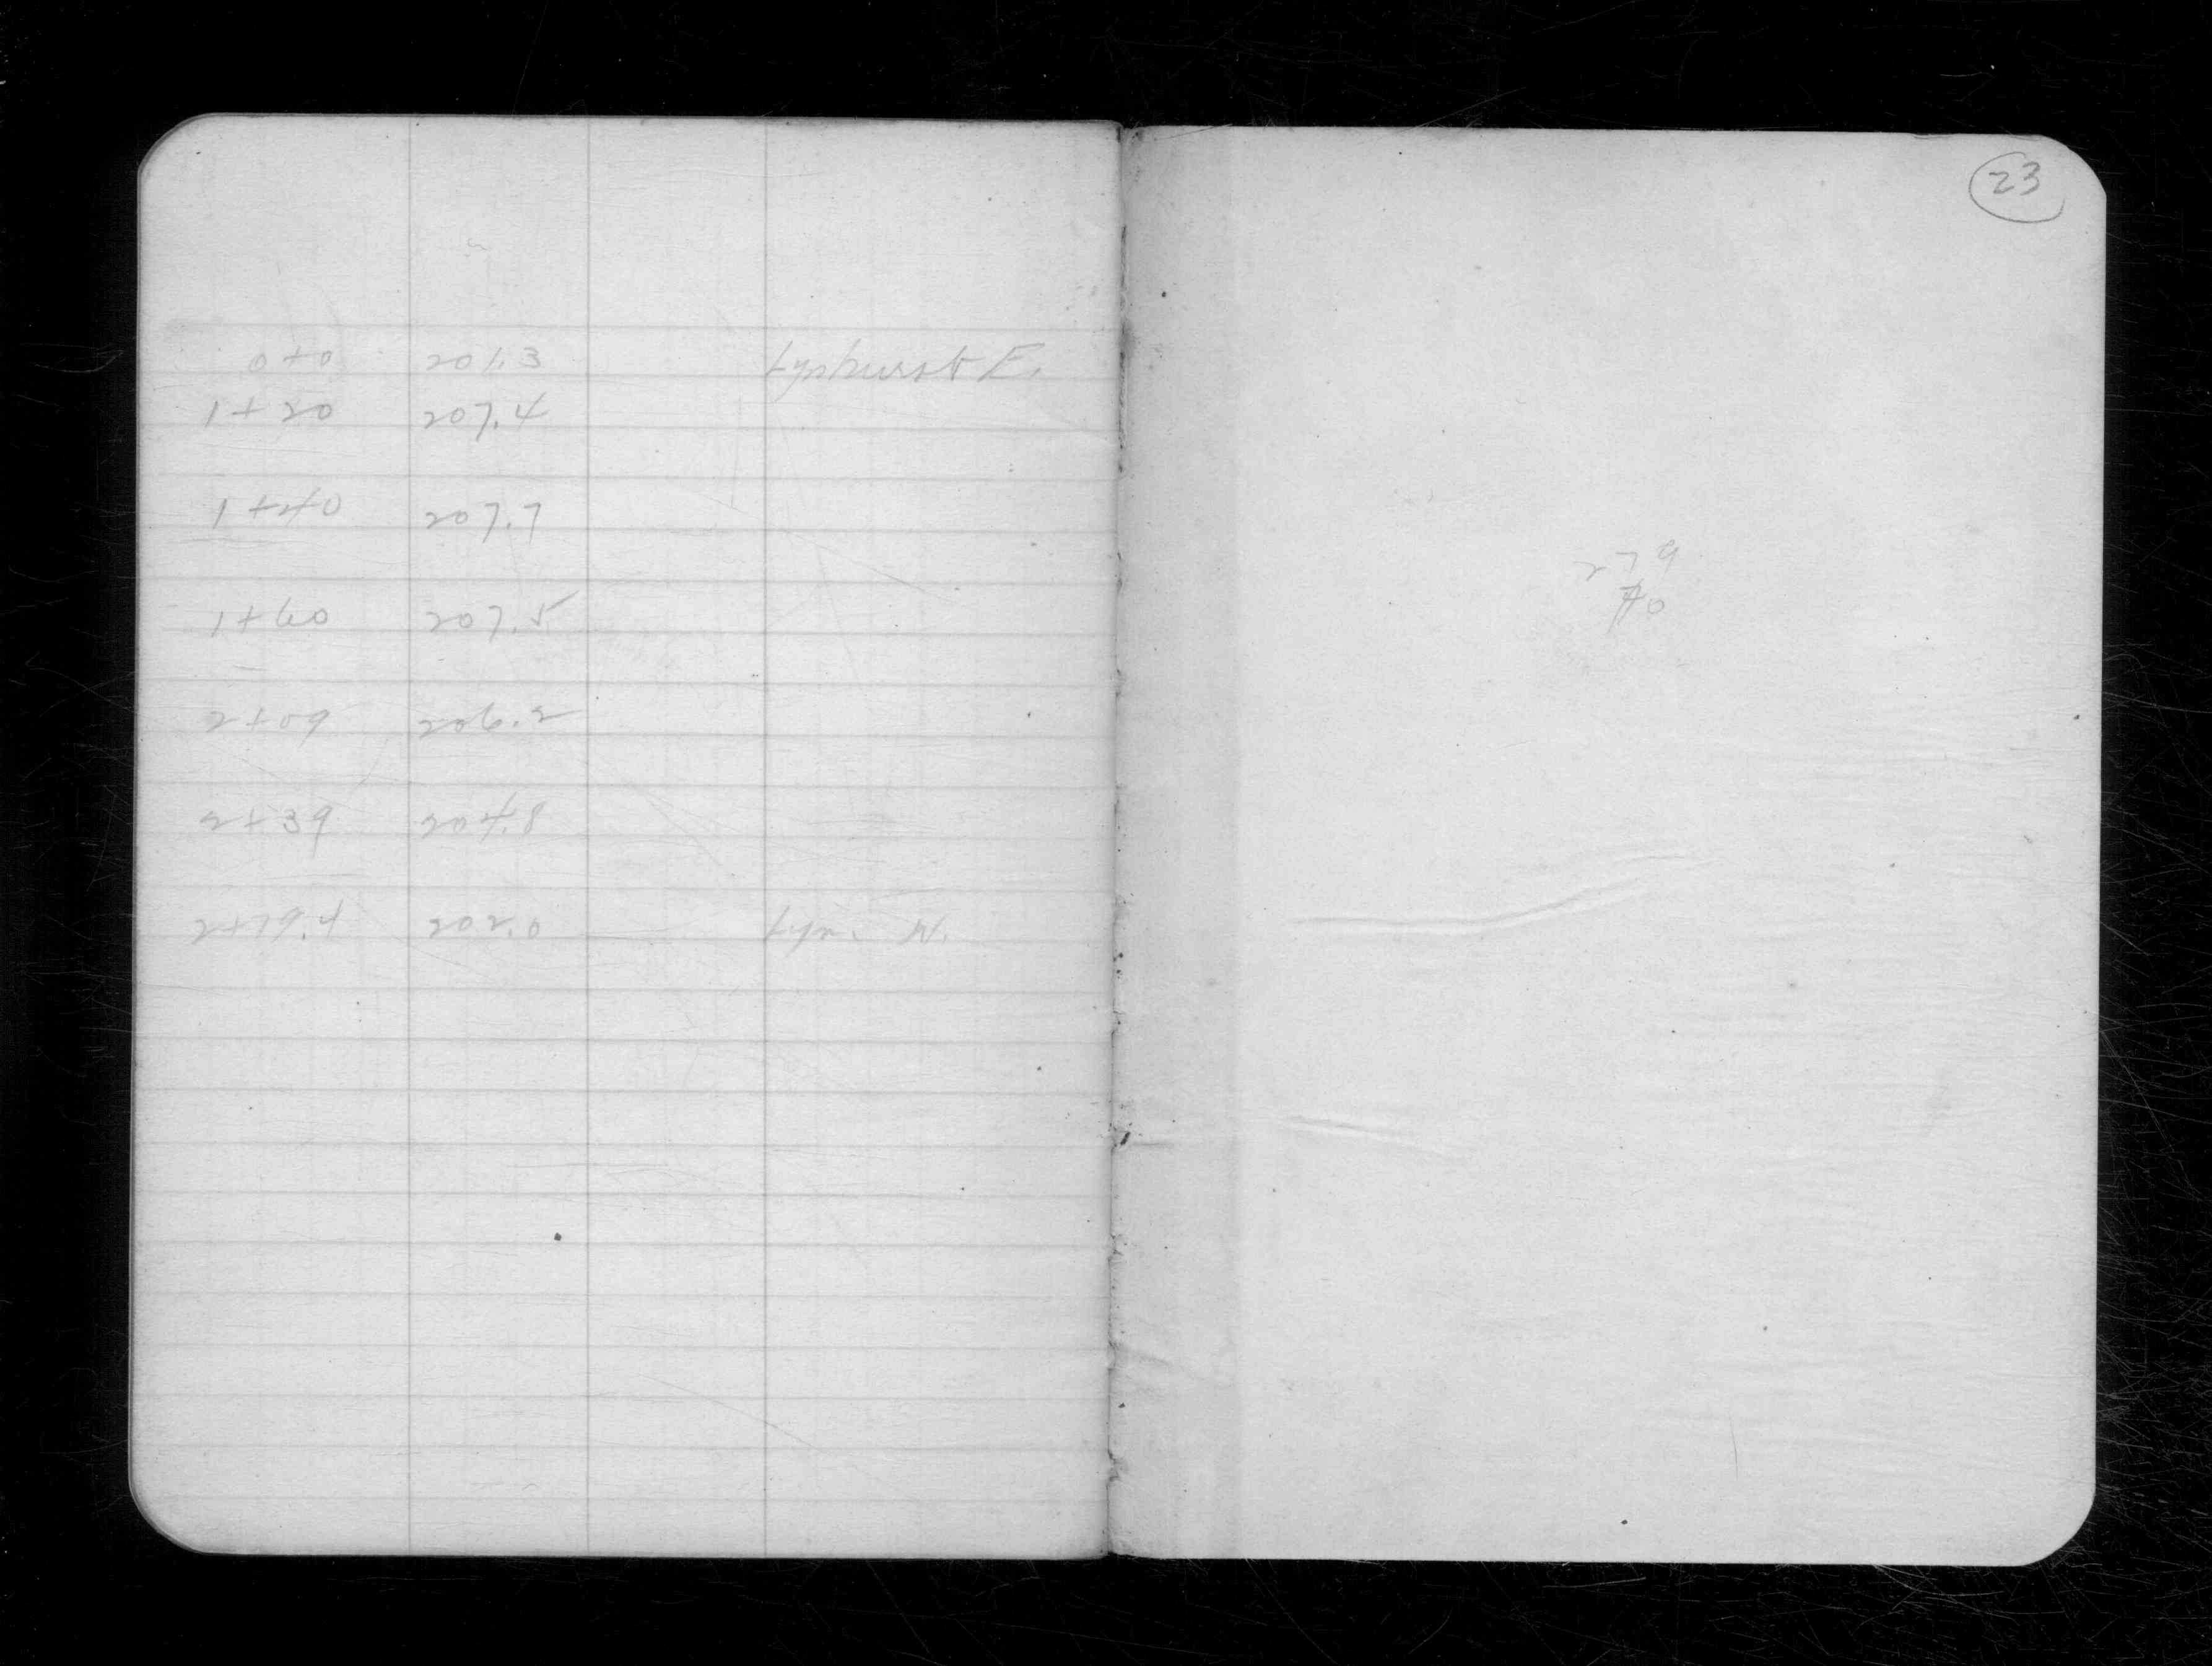 0+0 201.3 Lynhurst E.
1+20 207.4
1+40 207.7
1+60 207.5
2+09 206.2
2+39 204.8
2+79.4 202.0 Lyn. W.
23
279
40